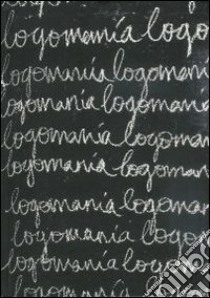 logomanía logo
logomanía logoman
ogomanía logomanía
logomanía logoman
logomanía logoman
logomanía logoman
logomanía logo
logomanía logom
logomanía